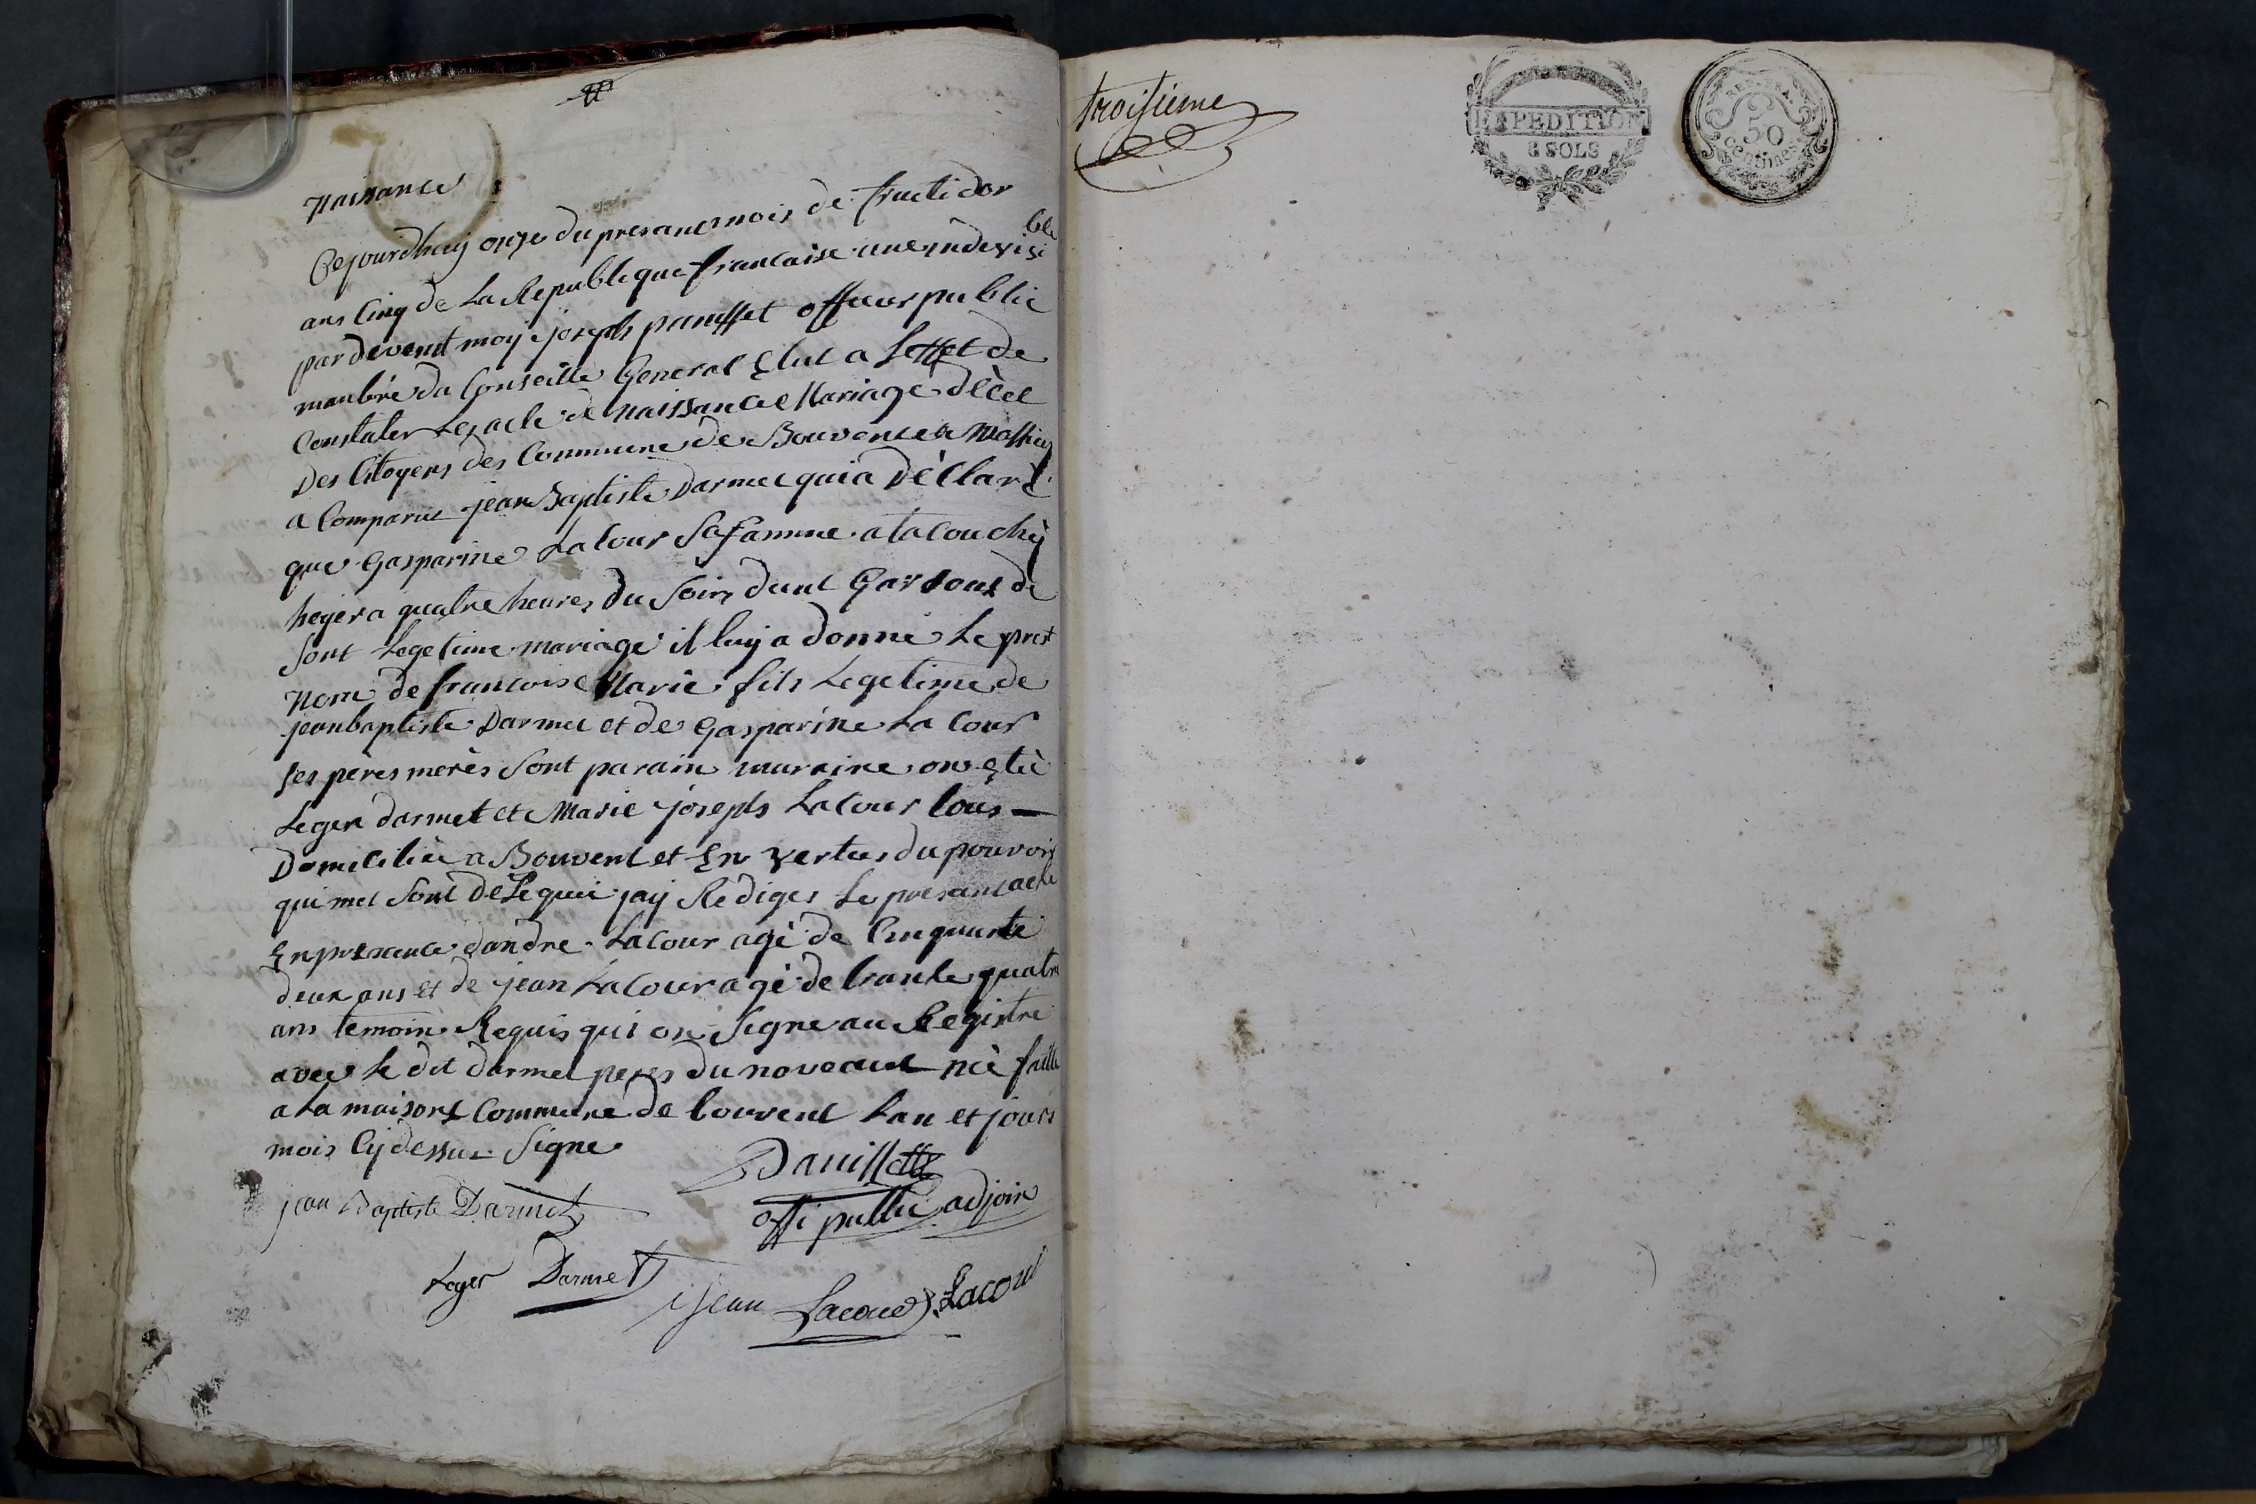 Naissance
Cejourdhuy onze du presant mois de fructidor
ans Cinq de La Republique francaise une indevisi
ble
par devent moy joseph officier public
manbre du Conseille General Elut a Leffet de
Constater Les acte de Naissance Mariage décet
Des Citoyens des Commune de Bouvent et
a Comparut jean Baptiste Darmet qui a Déclaré
que Gasparine Lacour Sa famme a tacouchéz
heyer a quatre heures du Soir dunt Garsont de
Sont Legetime mariage il luy a donné Le pret
Nom de francoise Marie fils Legetime de
jean baptiste Darmet et de Gasparine La Cour
ses peres meres Sont parain maraine on Eté
Leger darmet et Marie joseph Lacour tous
Domicilié a Bouvent et En vertus du pouvoir
qui met Sont Delegué jay Rediges Le presant acte
En presance dandre Lacour agé de Cinquante
deux ans et de jean Lacour agé de trante quatre
ans temoin Requis qui on Signe au Registre
avec Le dit darmet peres du noveaut né faitte
a La maisont Commune de bouvent Lan et jours
mois Cy dessus Signe
jean Baptiste Darmet
offi public adjoin
Leger Darmet
jean Lacour Lacour
troisieme
EXPEDITION
8 SOLS
50
centimes